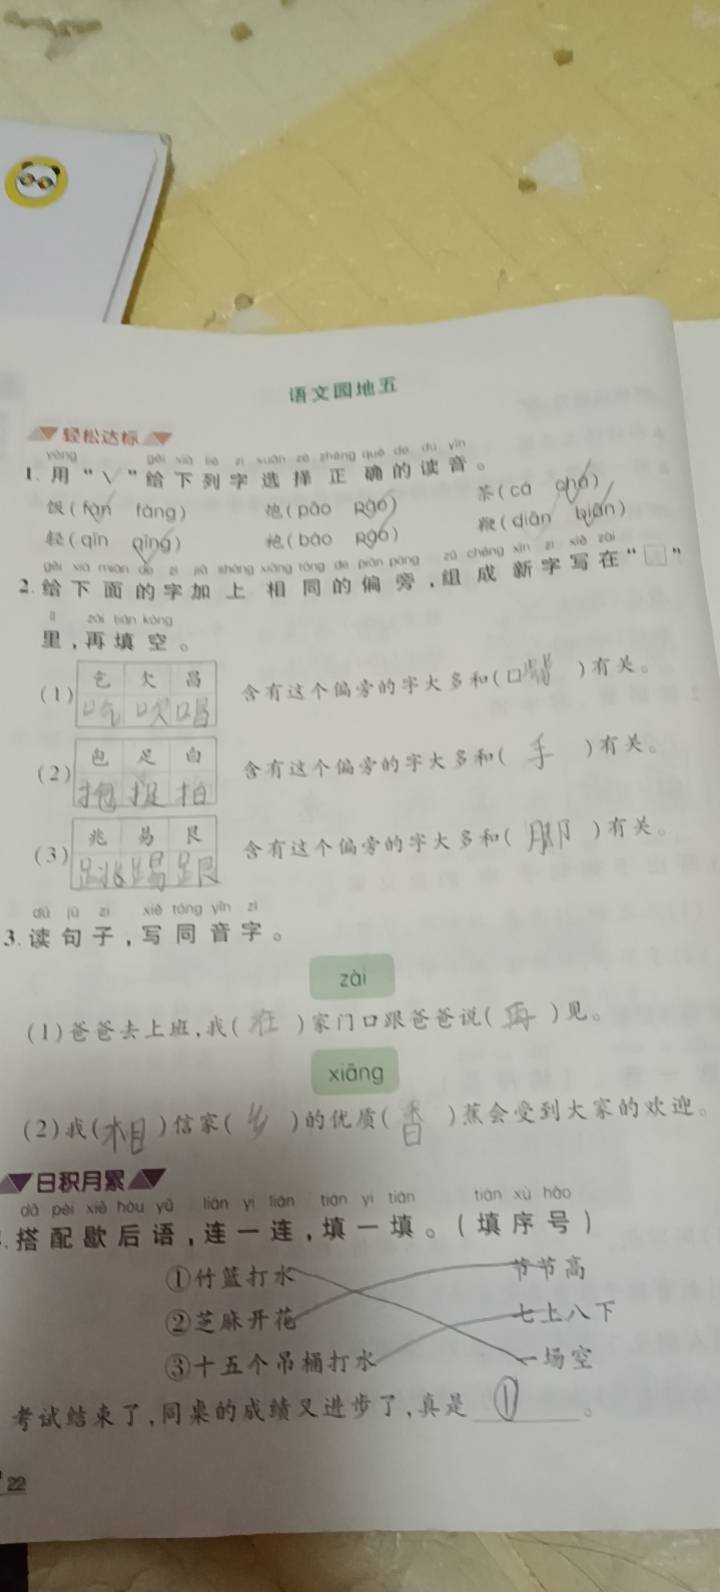 语文园地五
轻松达标
yòng gěi xià liè zì xuǎn zé zhèng què de dú yīn
1. 用“√”给下列字选择正确的读音。
饭(fàn fàng) 跑(pāo pǎo) 茶(cá chá)
轻(qīn qīng) 抱(bāo pǎo) 鞭(diān biān)
gěi xià miàn de zì jiā shàng xiāng tóng de piān páng zǔ chéng xīn zì xiě zài
2. 给下面的字加上相同的偏旁,组成新字写在“□”
lǐ zài tián kòng
里,再填空。
(1) 乞 欠 昌
吃 吹 唱 含有这个偏旁的字大多和(口 )有关。
(2) 包 足 白
抱 捉 拍 含有这个偏旁的字大多和( 手 )有关。
(3) 兆 易 艮
跳 踢 跟 含有这个偏旁的字大多和( 脚 )有关。
dú jù zi xiě tóng yīn zì
3. 读句子,写同音字。
zài
(1)爸爸去上班,我( 在 )家门口跟爸爸说( 再 )见。
xiāng
(2)我( 相 )信家( 乡 )的优质( 香 )蕉会受到大家的欢迎。
日积月累
dā pèi xiē hòu yǔ lián yi lián tián yi tián tián xù hào
. 搭配歇后语,连一连,填一填。(填序号)
①竹篮打水 节节高
②芝麻开花 七上八下
③十五个吊桶打水 一场空
考试结束了,同桌的成绩又进步了,真是 ① 。
22